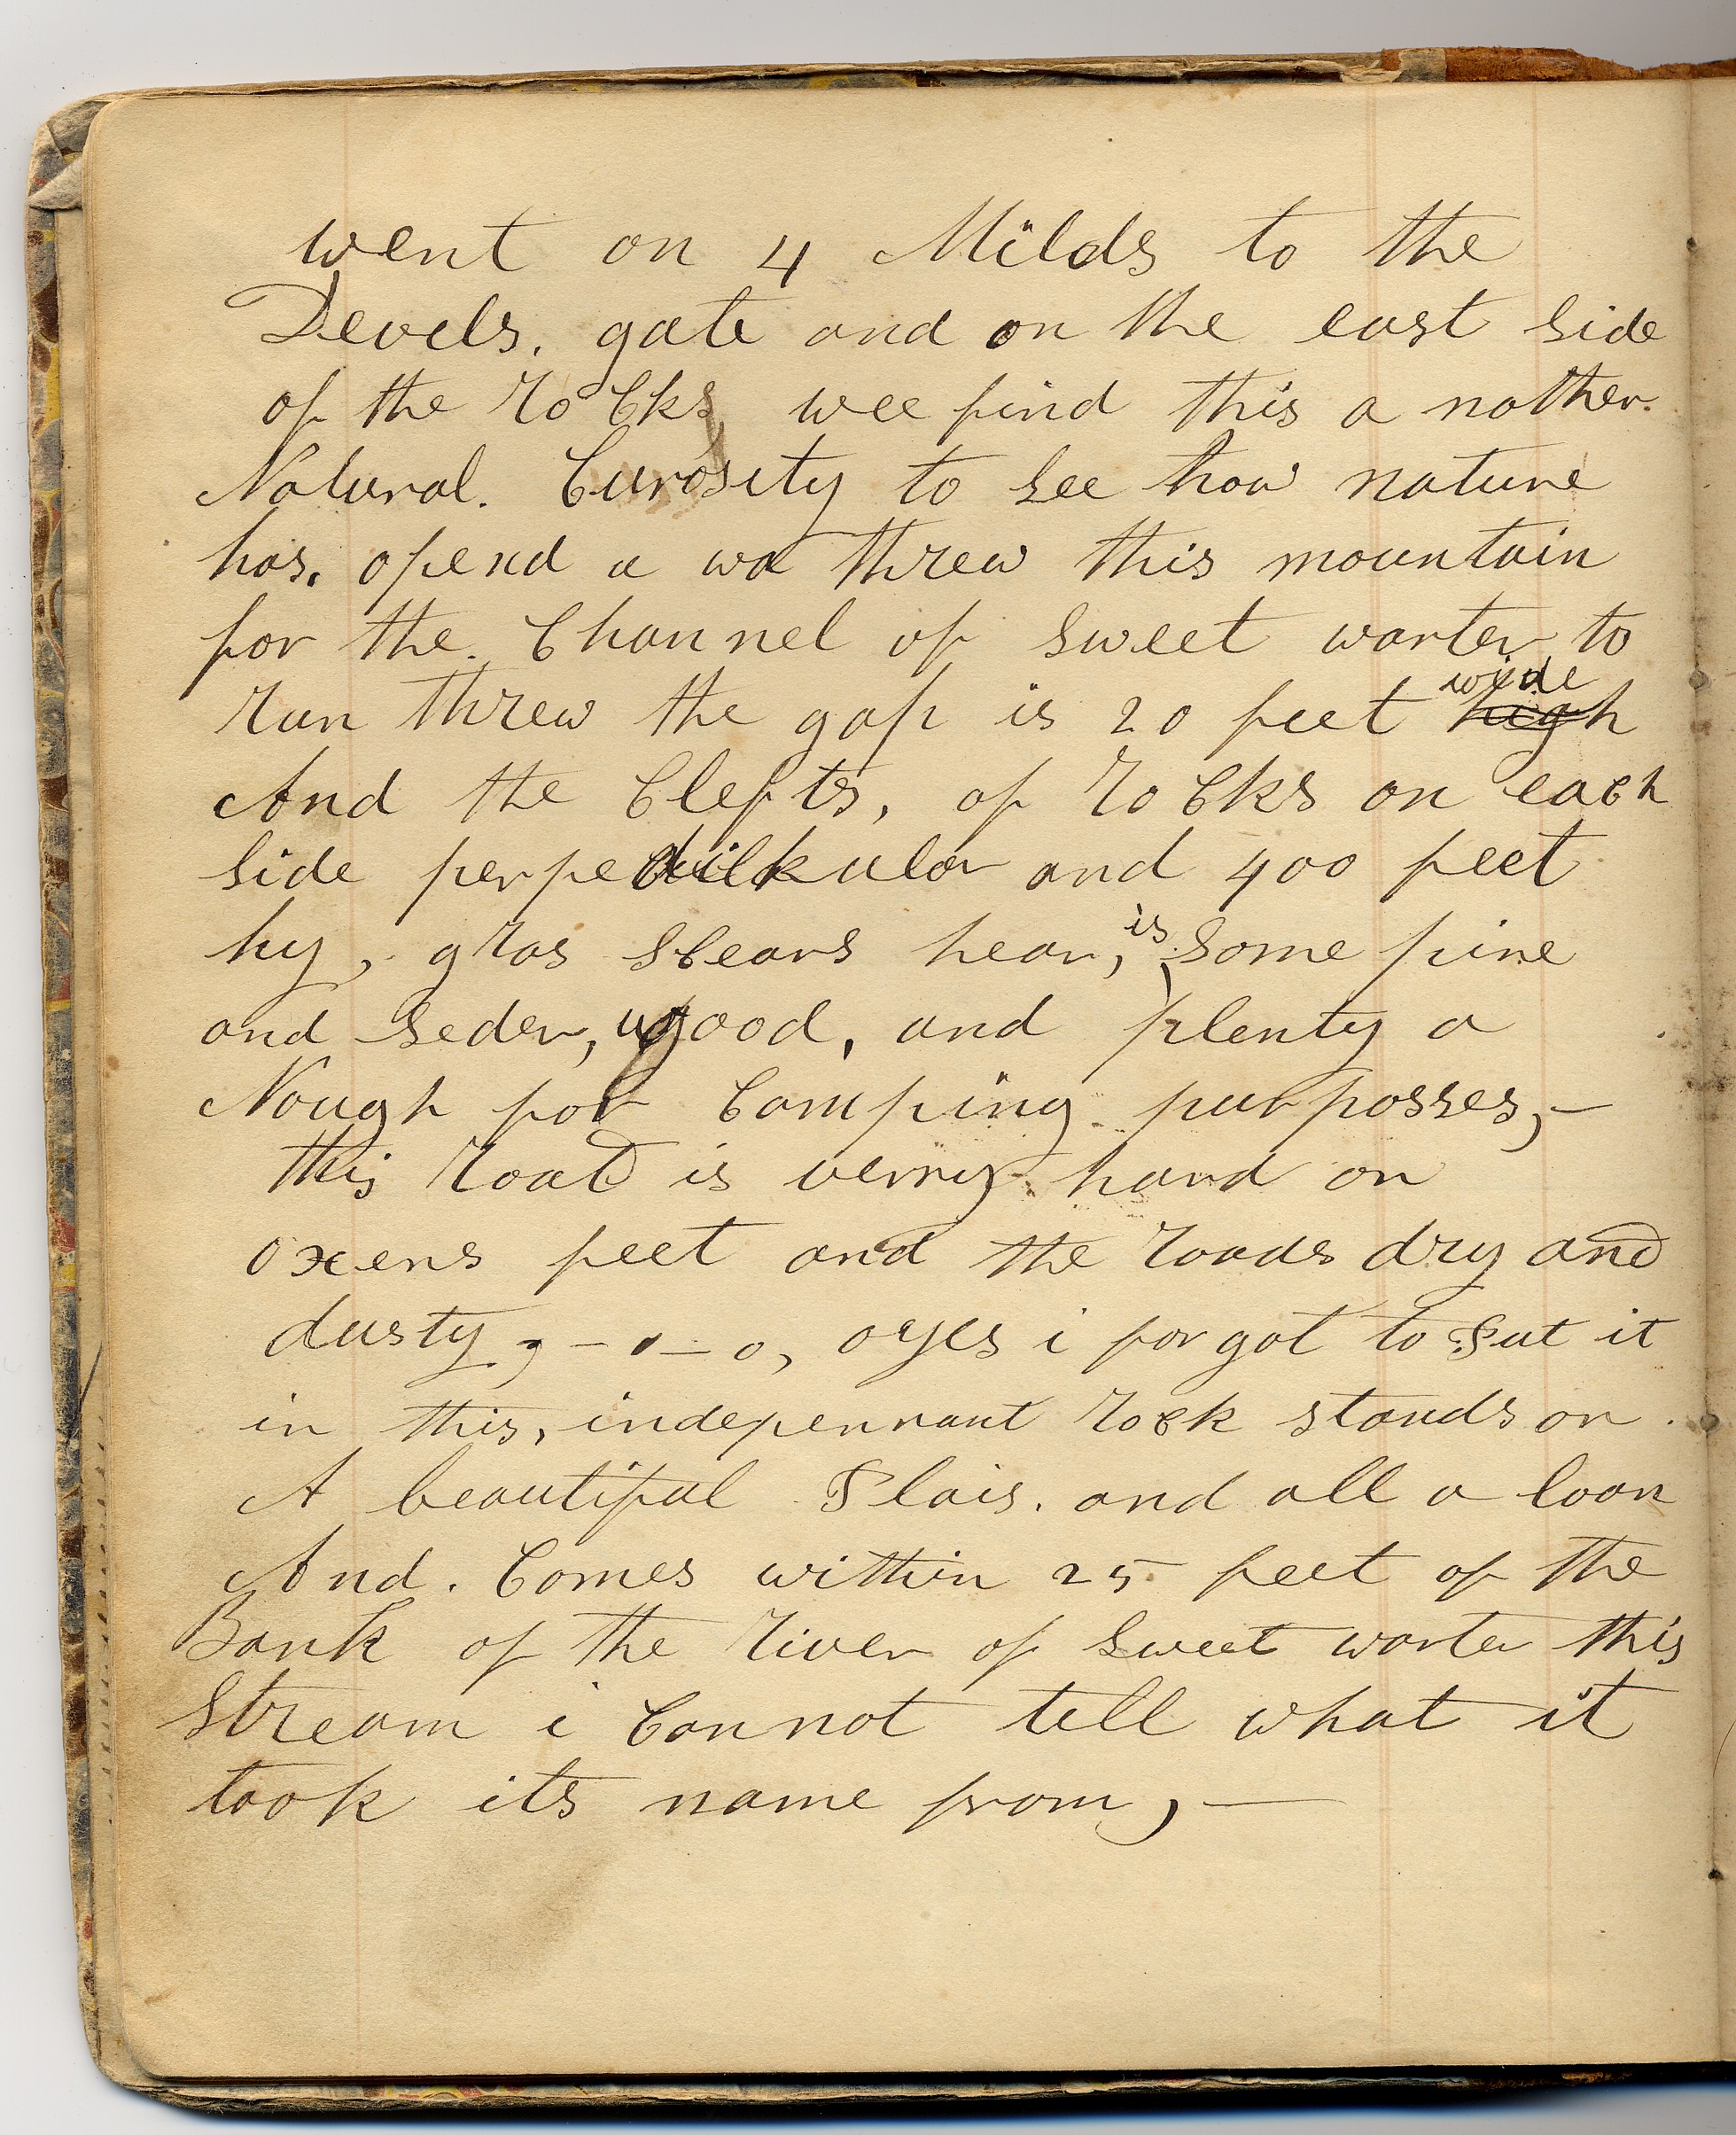 went on 4 Milds to the
Devels. gate and on the east side
of the rocks wee find this a nother
Natural. Curosity to see how nature
has. opend a wa threw this mountain
for the Channel of sweet warter to
run threw the gap is 20 feet high wide
And the Clefts, of rocks on each
side and 400 feet
hy, gras scears hear, is some pine
and seder, wood, and plenty a
Nough for Camping purposses,—
this road is verry hard on
oxens feet and the roads dry and
dusty, o, oyes i forgot to Put it
in this, indepennant rock stands on
A beautiful Plais. and all a loan
And. Comes within 25 feet of the
Bank of the river of sweet warter this
stream i Cannot tell what it
took its name from,—